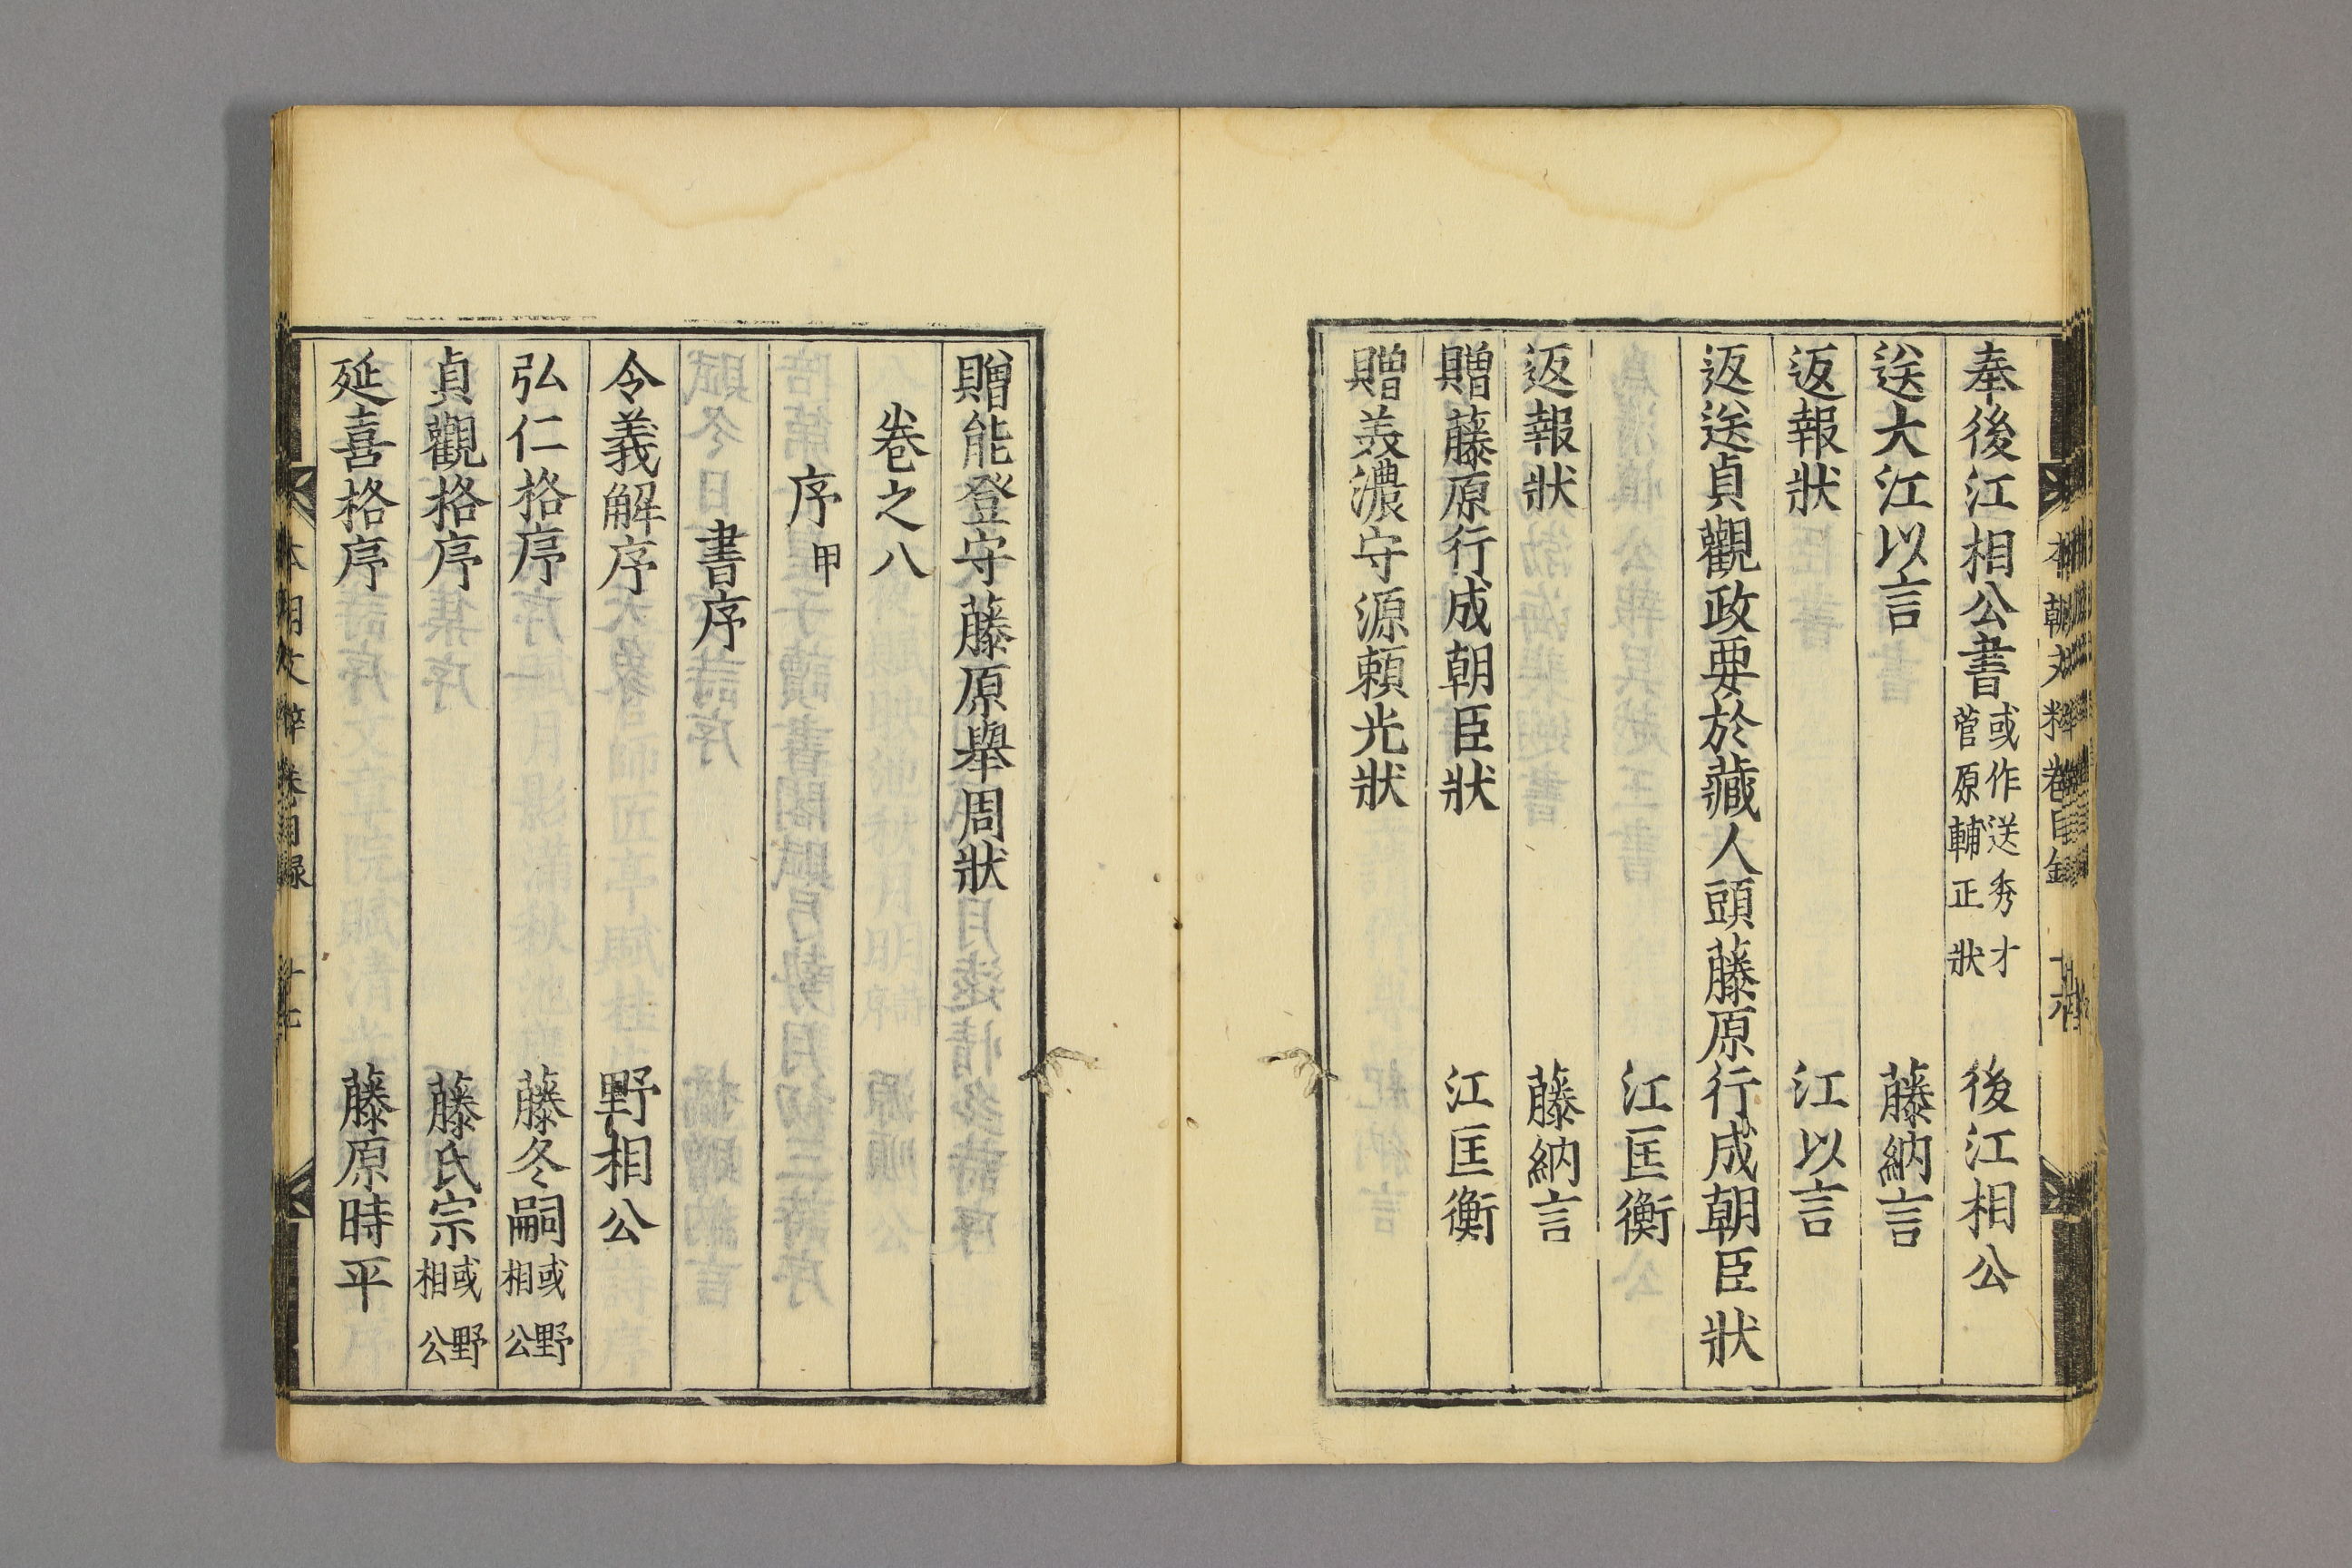 奉後江相公書 或作送秀才菅原輔正狀 後江相公
送大江以言 藤納言
返報狀 江以言
返送貞觀政要於藏人頭藤原行成朝臣狀
江匡衡
返報狀 藤納言
贈藤原行成朝臣狀 江匡衡
贈美濃守源頼光狀
贈能登守藤原舉周狀
卷之八
序 甲
書序
令義解序 野相公
弘仁格序 藤冬嗣 或野相公
貞觀格序 藤氏宗 或野相公
延喜格序 藤原時平
本朝文粹卷目録 十七